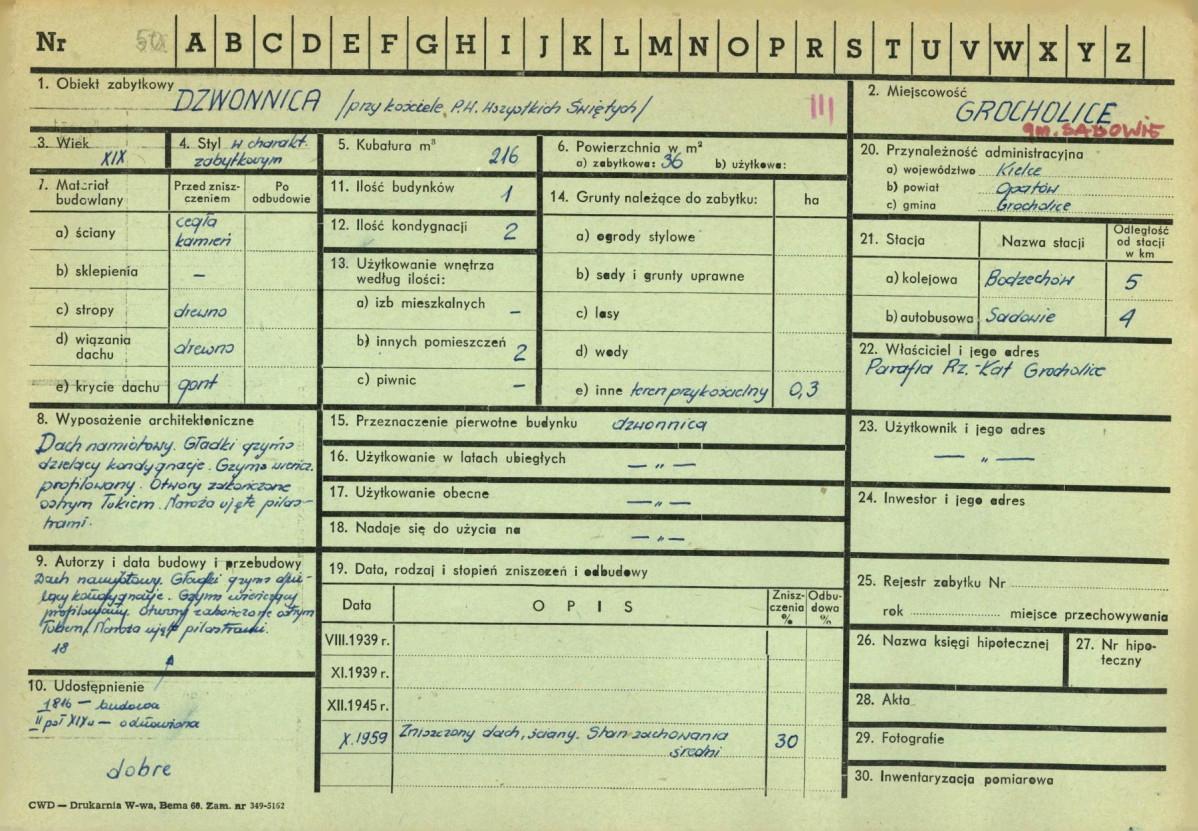 Nr 50 A B C D E F G H I J K L M N O P R S T U V W X Y Z
1. Obiekt zabytkowy DZWONNICA /przy kościele P.W. Wszystkich Świętych/ III
2. Miejscowość
GROCHOLICE
gm. SADOWIE
3. Wiek
XIX
4. Styl w charakt.
zabytkowym
5. Kubatura m³
216
6. Powierzchnia w m²
a) zabytkowa: 36 b) użytkowa:
7. Materiał
budowlany
Przed znisz-
czeniem
Po
odbudowie
a) ściany cegła
kamień
b) sklepienia –
c) stropy drewno
d) wiązania
dachu drewno
e) krycie dachu gont
8. Wyposażenie architektoniczne
Dach namiotowy. Gładki gzyms
dzielący kondygnacje. Gzyms wieńcz.
profilowany. Otwory zakończone
ostrym łukiem. Naroża ujęte pilas-
trami.
9. Autorzy i data budowy i przebudowy
Dach namiotowy. Gładki gzyms dzie-
lący kondygnacje. Gzyms wieńczący
profilowany. Otwory zakończone ostrym
łukiem. Naroża ujęte pilastrami.
18
10. Udostępnienie
1816 – budowa
II poł XIX w – odnowiona
dobre
11. Ilość budynków 1
12. Ilość kondygnacji 2
13. Użytkowanie wnętrza
według ilości:
a) izb mieszkalnych –
b) innych pomieszczeń 2
c) piwnic –
14. Grunty należące do zabytku: ha
a) ogrody stylowe
b) sady i grunty uprawne
c) lasy
d) wody
e) inne teren przykościelny 0,3
15. Przeznaczenie pierwotne budynku dzwonnica
16. Użytkowanie w latach ubiegłych — „ —
17. Użytkowanie obecne — „ —
18. Nadaje się do użycia na — „ —
19. Data, rodzaj i stopień zniszczeń i odbudowy
Data
OPIS
Znisz-
czenia
%
Odbu-
dowa
%
VIII.1939 r.
XI.1939 r.
XII.1945 r.
X.1959 Zniszczony dach, ściany. Stan zachowania
średni 30
20. Przynależność administracyjna
a) województwo Kielce
b) powiat Opatów
c) gmina Grocholice
21. Stacja
Nazwa stacji
Odległość
od stacji
w km
a) kolejowa Bodzechów 5
b) autobusowa Sadowie 4
22. Właściciel i jego adres
Parafia Rz.-Kat Grocholice
23. Użytkownik i jego adres
— „ —
24. Inwestor i jego adres
25. Rejestr zabytku Nr
rok miejsce przechowywania
26. Nazwa księgi hipotecznej
27. Nr hipo-
teczny
28. Akta
29. Fotografie
30. Inwentaryzacja pomiarowa
CWD — Drukarnia W-wa, Bema 60. Zam. nr 349-5162